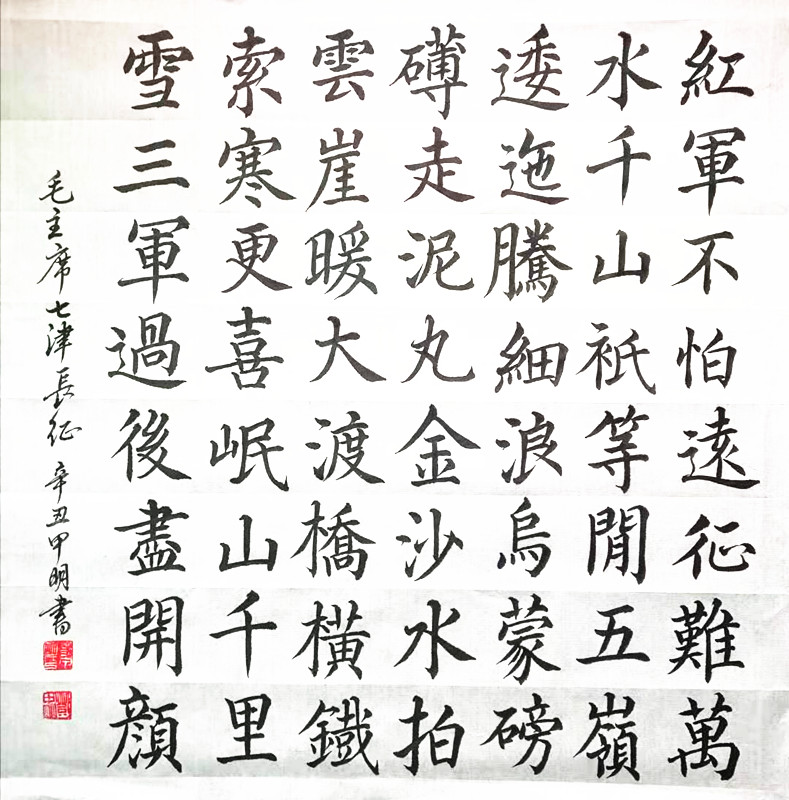 紅軍不怕遠征難萬
水千山衹等閒五嶺
逶迤騰細浪烏蒙磅
礴走泥丸金沙水拍
雲崖暖大渡橋橫鐵
索寒更喜岷山千里
雪三軍過後盡開顏
毛主席七津長征 辛丑甲明書